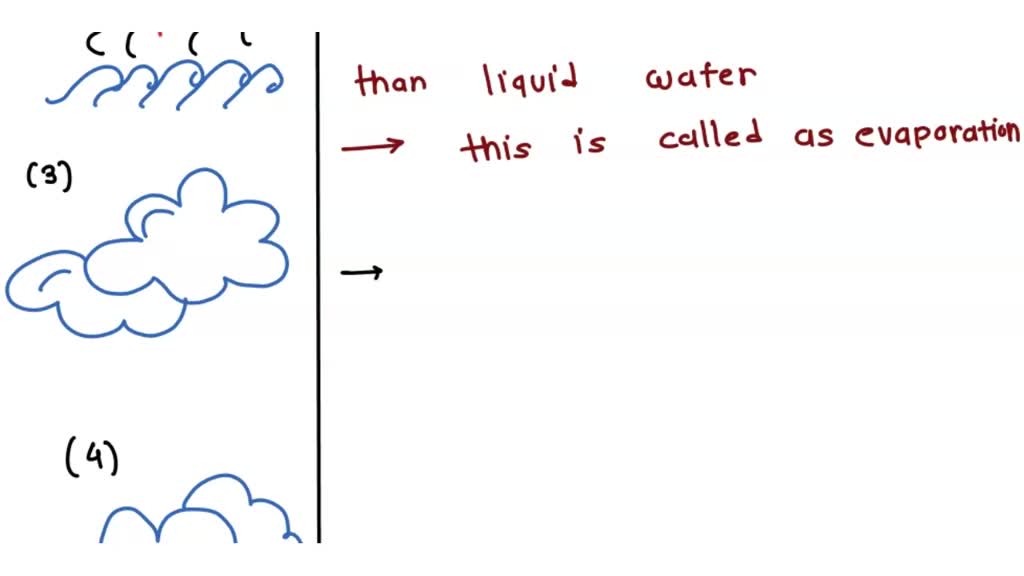 than liquid water
→ this is called as evaporation
(3)
→
(4)